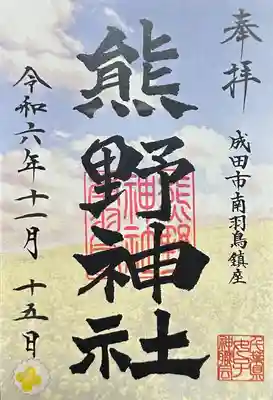 奉拝
成田市南羽鳥鎮座
熊野神社
令和六年十一月十五日